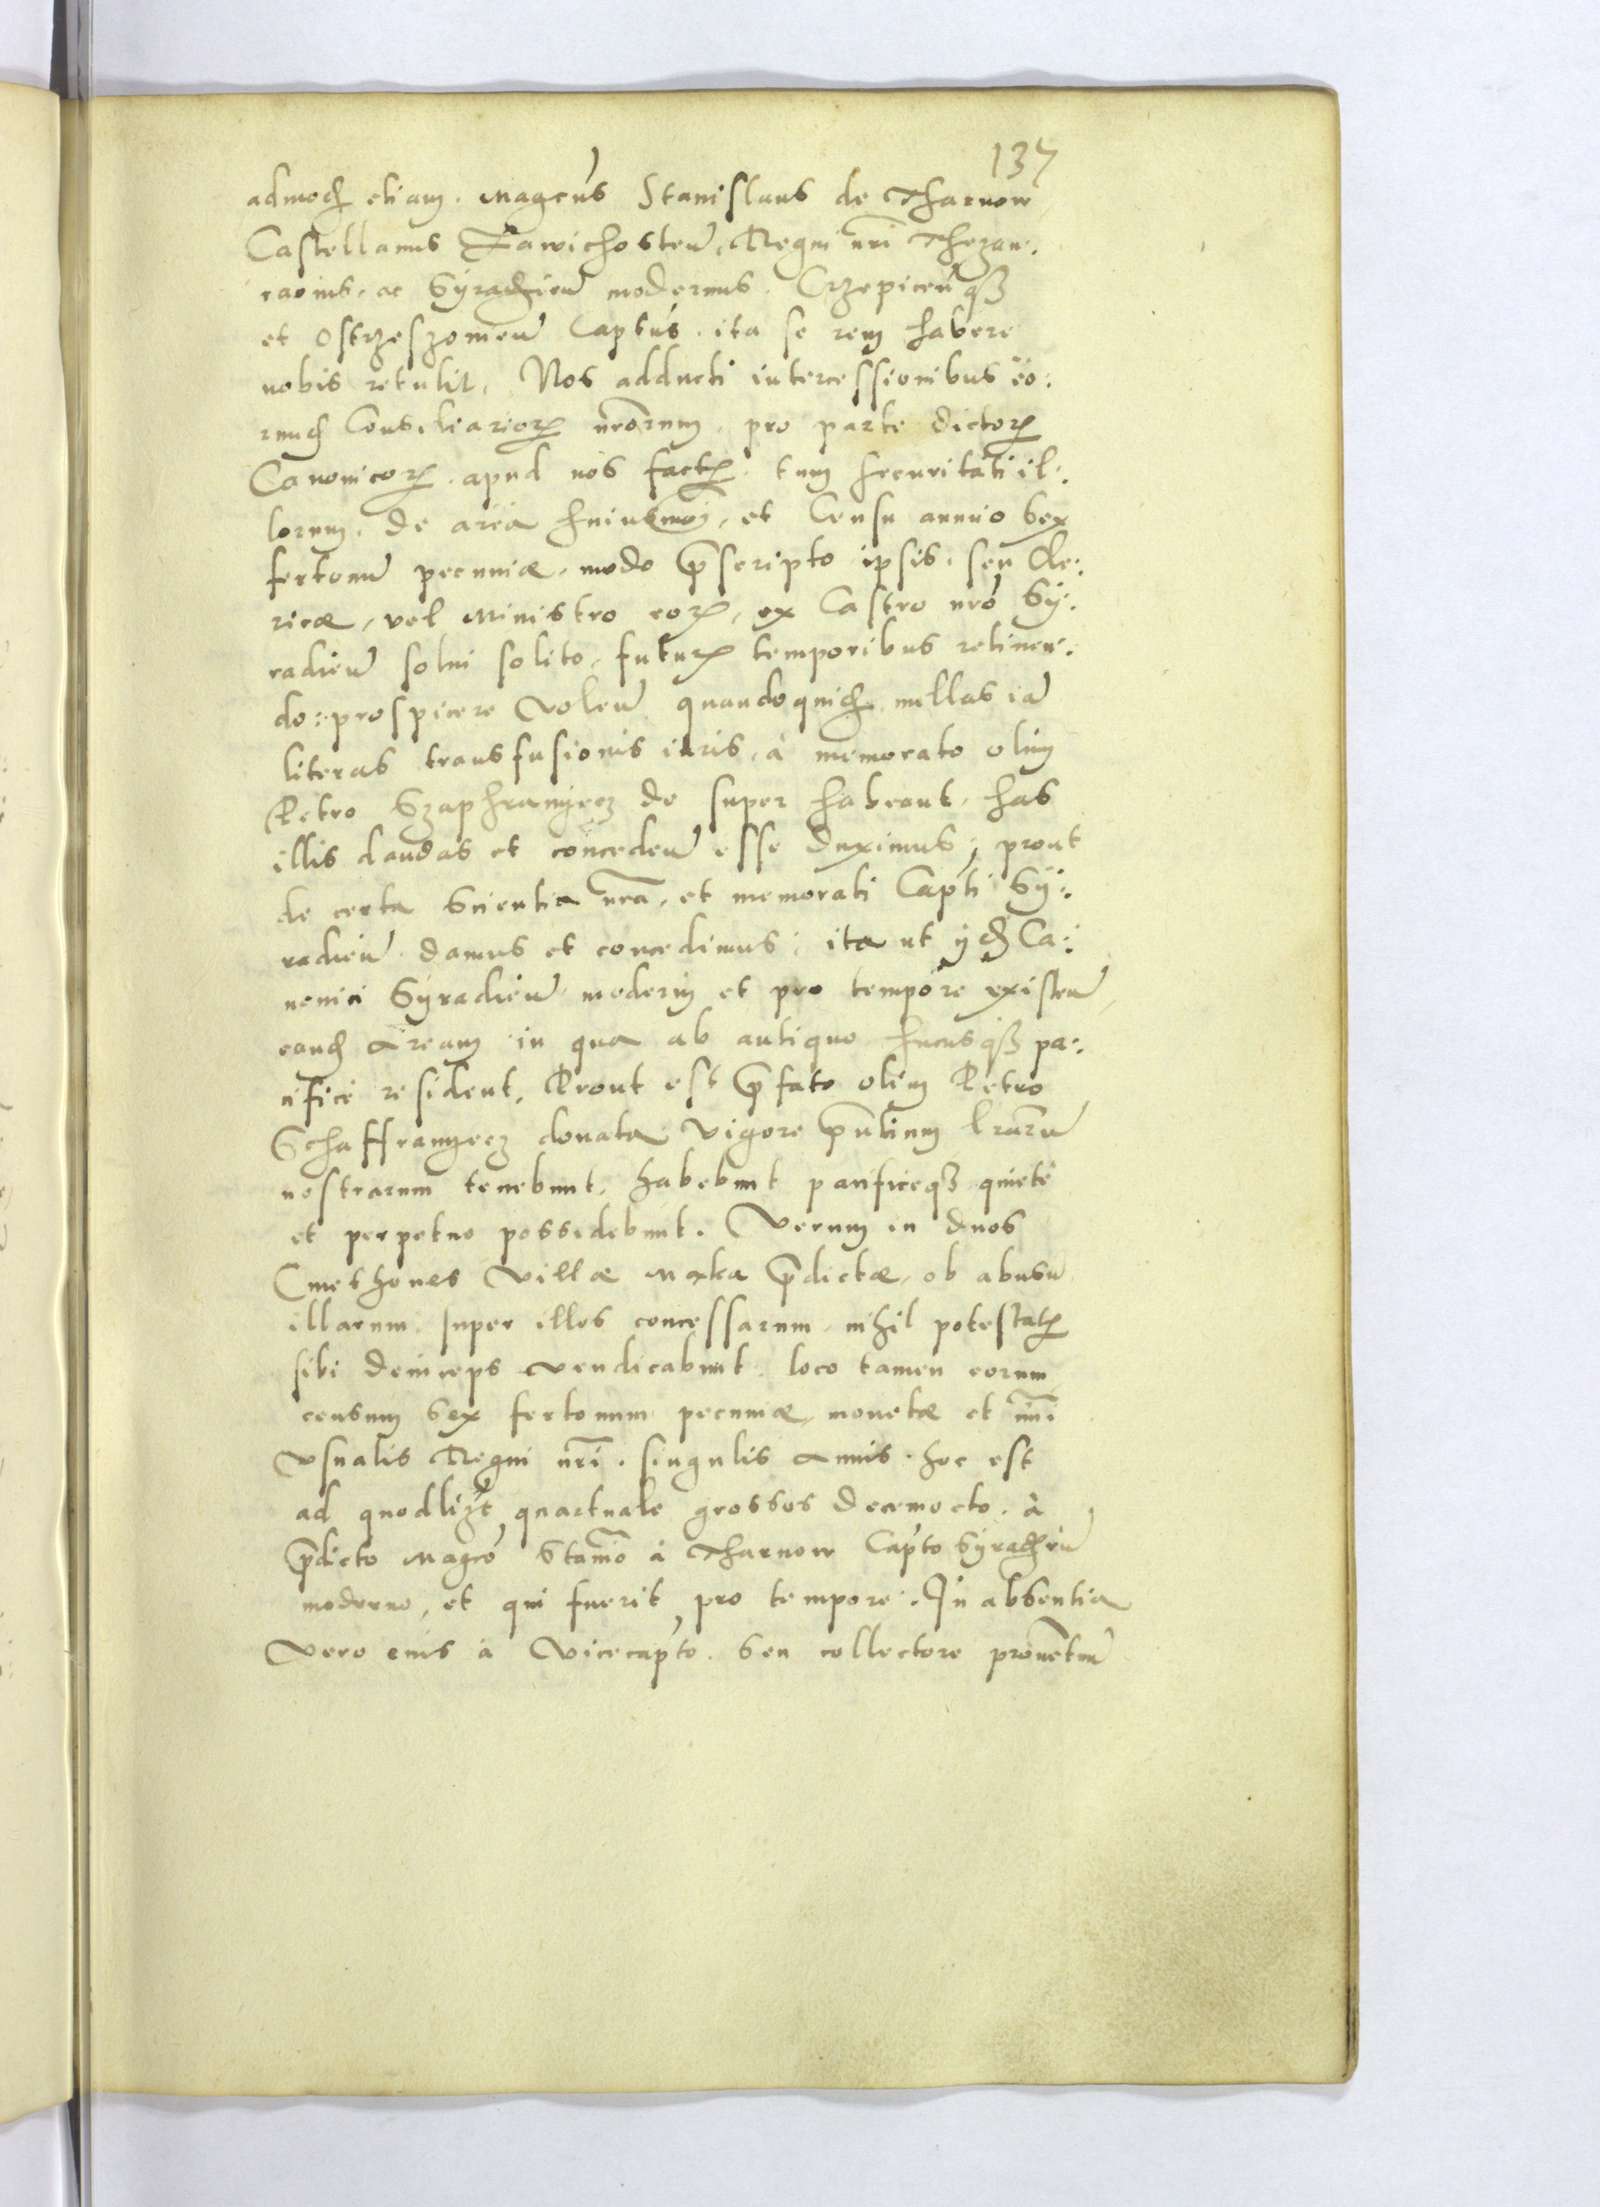 137
admodum etiam. Magcus Stanislaus de Tharnow
Castellanus Zawichosten, Regni nri Thezau:
rarius, ac Syradien modernus. Crzepicen qz
et Ostrzeszowien Captus. ita se rem habere
nobis retulit. Nos adducti intercessionibus eo:
rund Consiliarior nrorum, pro parte dictor
Canonicor. apud nos fact, tum securitati il:
lorum, de area huiusmoi, et Censu annuo sex
fertonu pecuniæ, modo pscripto ipsis, seu Cle:
ricæ, vel Ministro eor, ex Castro nro Sy:
radien solui solito, futur temporibus retinen:
do: prospicere Volen quandoquid nullas ia
literas transfusionis iuris, à memorato olim
Petro Szaphranyecz de super habeant, has
illis dandas et conceden esse duximus; prout
de certa Scientia nra, et memorati Capti Sy:
radien damus et concedimus: ita ut iid Ca:
nonici Syradien moderni et pro tempore existen
eand Aream in qua ab antiquo hucusqz pa:
cifice resident, Prout est pfato olim Petro
Schaffranyecz donata Vigore pntium lraru
nostrarum tenebunt, habebunt pacificeqz quiete
et perpetuo possidebunt. Verum in duos
Cmethones Villæ Maka pdictæ, ob abusu
illarum super illos concessarum, nihil potestat
sibi deinceps vendicabunt. loco tamen eorum
censum sex fertonum pecuniæ, monetæ et nui
Vsualis Regni nri. singulis Annis. hoc est
ad quodlibet quartuale grossos decemocto. à
pdicto Magco Stanio à Tharnow Capto Syradien
moderno, et qui fuerit pro tempore. In absentia
Vero eius à Vicecapto. Seu collectore prouentuu